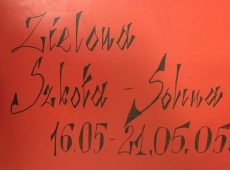 Zielona
Szkoła - Solina
16.05-21.05.05